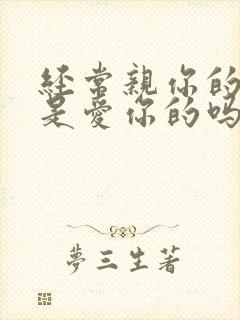 经常親你的
是愛你的吗
夢三生著